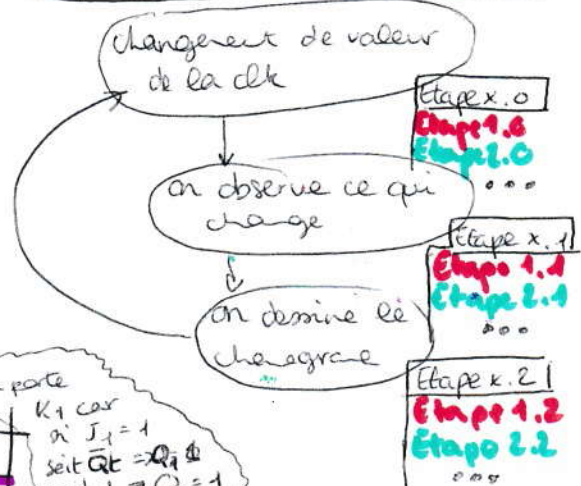 changement de valeur
de la clk
Etape x.0
Etape 1.0
Etape 2.0
...
on observe ce qui
change
Etape x.1
Etape 1.1
Etape 2.1
...
on dessine le
chonogramme
Etape x.2
Etape 1.2
Etape 2.2
...
porte
K1 car
si J1 = 1
soit